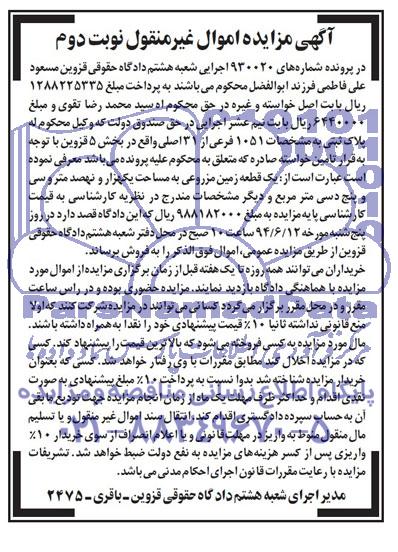 آگهی مزایده اموال غیرمنقول نوبت دوم
در پرونده شماره‌های ۹۳۰۰۲۰ اجرایی شعبه هشتم دادگاه حقوقی قزوین مسعود
علی فاطمی فرزند ابوالفضل محکوم می باشند به پرداخت مبلغ ۱۲۸۸۲۲۵۳۳۵
ریال بابت اصل خواسته و غیره در حق محکوم له سید محمد رضا تقوی و مبلغ
۶۴۴۰۰۰۰۰ ریال بابت نیم عشر اجرایی در حق صندوق دولت که وکیل محکوم له
پلاک ثبتی به مشخصات ۱۰۵۱ فرعی از ۳۱ اصلی واقع در بخش ۵ قزوین با توجه
به قرار تامین خواسته صادره که متعلق به محکوم علیه پرونده می باشد معرفی نموده
است عبارت است از: یک قطعه زمین مزروعی به مساحت یکهزار و نهصد متر و سی
و پنج دسی متر مربع و دیگر مشخصات مندرج در نظریه کارشناسی به قیمت
کارشناسی پایه مزایده به مبلغ ۹۸۸۱۸۲۰۰۰ ریال که این دادگاه قصد دارد در روز
پنج شنبه مورخه ۹۴/۶/۱۲ ساعت ۱۰ صبح در محل دفتر شعبه هشتم دادگاه حقوقی
قزوین از طریق مزایده عمومی، اموال فوق الذکر را به فروش برساند.
خریداران می توانند همه روزه تا یک هفته قبل از زمان برگزاری مزایده از اموال مورد
مزایده با هماهنگی دادگاه بازدید نمایند. مزایده حضوری بوده و در راس ساعت
مقرر و در محل مقرر برگزار می گردد کسانی می توانند در مزایده شرکت کنند که اولا
منع قانونی نداشته ثانیا ۱۰٪ قیمت پیشنهادی خود را نقدا به همراه داشته باشند.
مال مورد مزایده به کسی فروخته می شود که بالاترین قیمت را پیشنهاد کند. کسی
که در مزایده اخلال کند مطابق مقررات با وی رفتار خواهد شد. کسی که بعنوان
خریدار مزایده شناخته شد بدوا نسبت به پرداخت ۱۰٪ مبلغ پیشنهادی به صورت
نقدی اقدام و حداکثر ظرف مهلت یک ماه از زمان انجام مزایده جهت تودیع مابقی
آن به حساب سپرده دادگستری اقدام کند. انتقال سند اموال غیر منقول و یا تسلیم
مال منقول منوط به واریز در مهلت قانونی و یا اعلام انصراف از سوی خریدار ۱۰٪
واریزی پس از کسر هزینه‌های مزایده به نفع دولت ضبط خواهد شد. تشریفات
مزایده با رعایت مقررات قانون اجرای احکام مدنی می باشد.
مدیر اجرای شعبه هشتم دادگاه حقوقی قزوین ـ باقری ـ ۲۴۷۵
ParsNamadData
۰۲۱-۸۸۳۴۹۶۷۰-۵